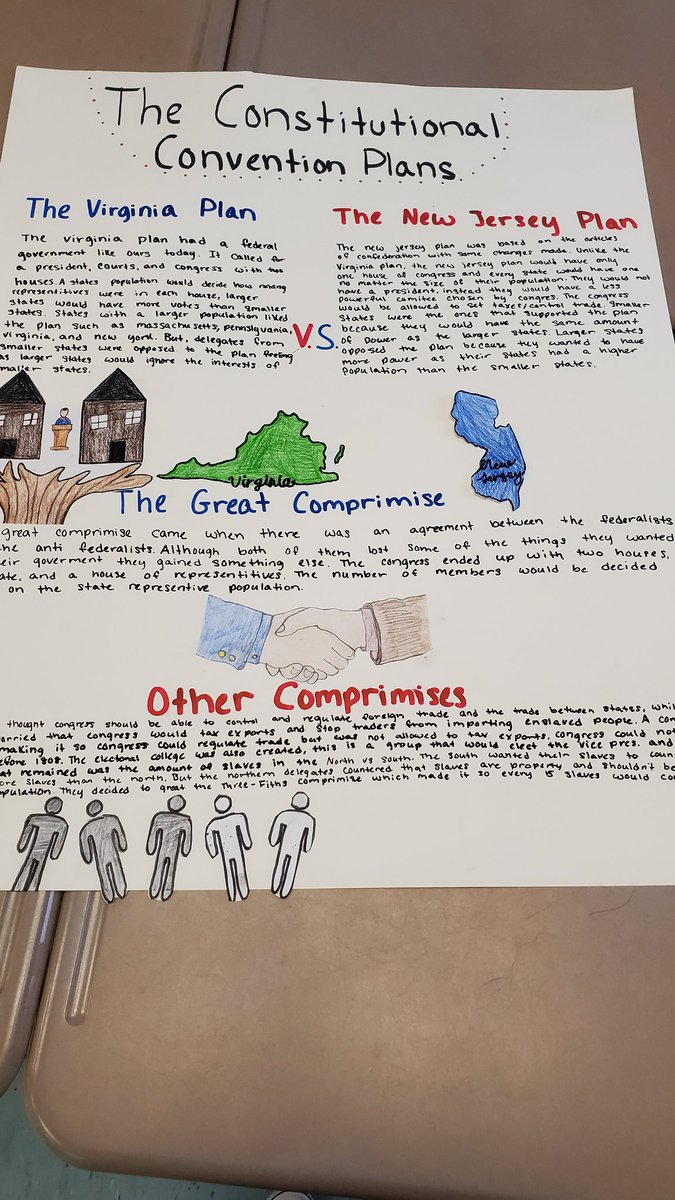 The Constitutional
Convention Plans
The Virginia Plan
The virginia plan had a federal
government like ours today. It called for
a president, courts, and congress with two
houses. A states population would decide how many
representitives were in each house, larger
states would have more votes than smaller
states. States with a larger population liked
the plan such as massachusetts, pennsylvania,
virginia, and new york. But, delegates from
smaller states were opposed to the plan feeling
as larger states would ignore the interests of
smaller states.
V.S.
The New Jersey Plan
The new jersey plan was based on the articles
of confederation with some changes made. Unlike the
Virginia plan, the new jersey plan would have only
one house of congress and every state would have one
no matter the size of their population. They would not
have a president, instead they would have a less
powerful comitee chosen by congres. The congress
would be allowed to set taxes/control trade. Smaller
states were the ones that supported the plan
because they would have the same amount
of power as the larger states. Larger states
opposed the plan because they wanted to have
more power as their states had a higher
population than the smaller states.
Virginia
New
Jersey
The Great Comprimise
great comprimise came when there was an agreement between the federalists
the anti federalists. Although both of them lost some of the things they wanted
their goverment they gained something else. The congress ended up with two houses,
ate, and a house of representitives. The number of members would be decided
on the state representive population.
Other Comprimises
thought congress should be able to control and regulate foreign trade and the trade between states, whil
orried that congress would tax exports and stop traders from importing enslaved people. A com
making it so congress could regulate trade but was not allowed to tax exports, congress could not
efore 1808. The electoral college was also created, this is a group that would elect the vice pres. and
at remained was the amount of slaves in the North vs South. The South wanted their slaves to coun
ore slaves than the north. But the northern delegates countered that slaves are property and shouldn't be
opulation. They decided to great the Three-Fiths comprimise which made it so every 5 slaves would co